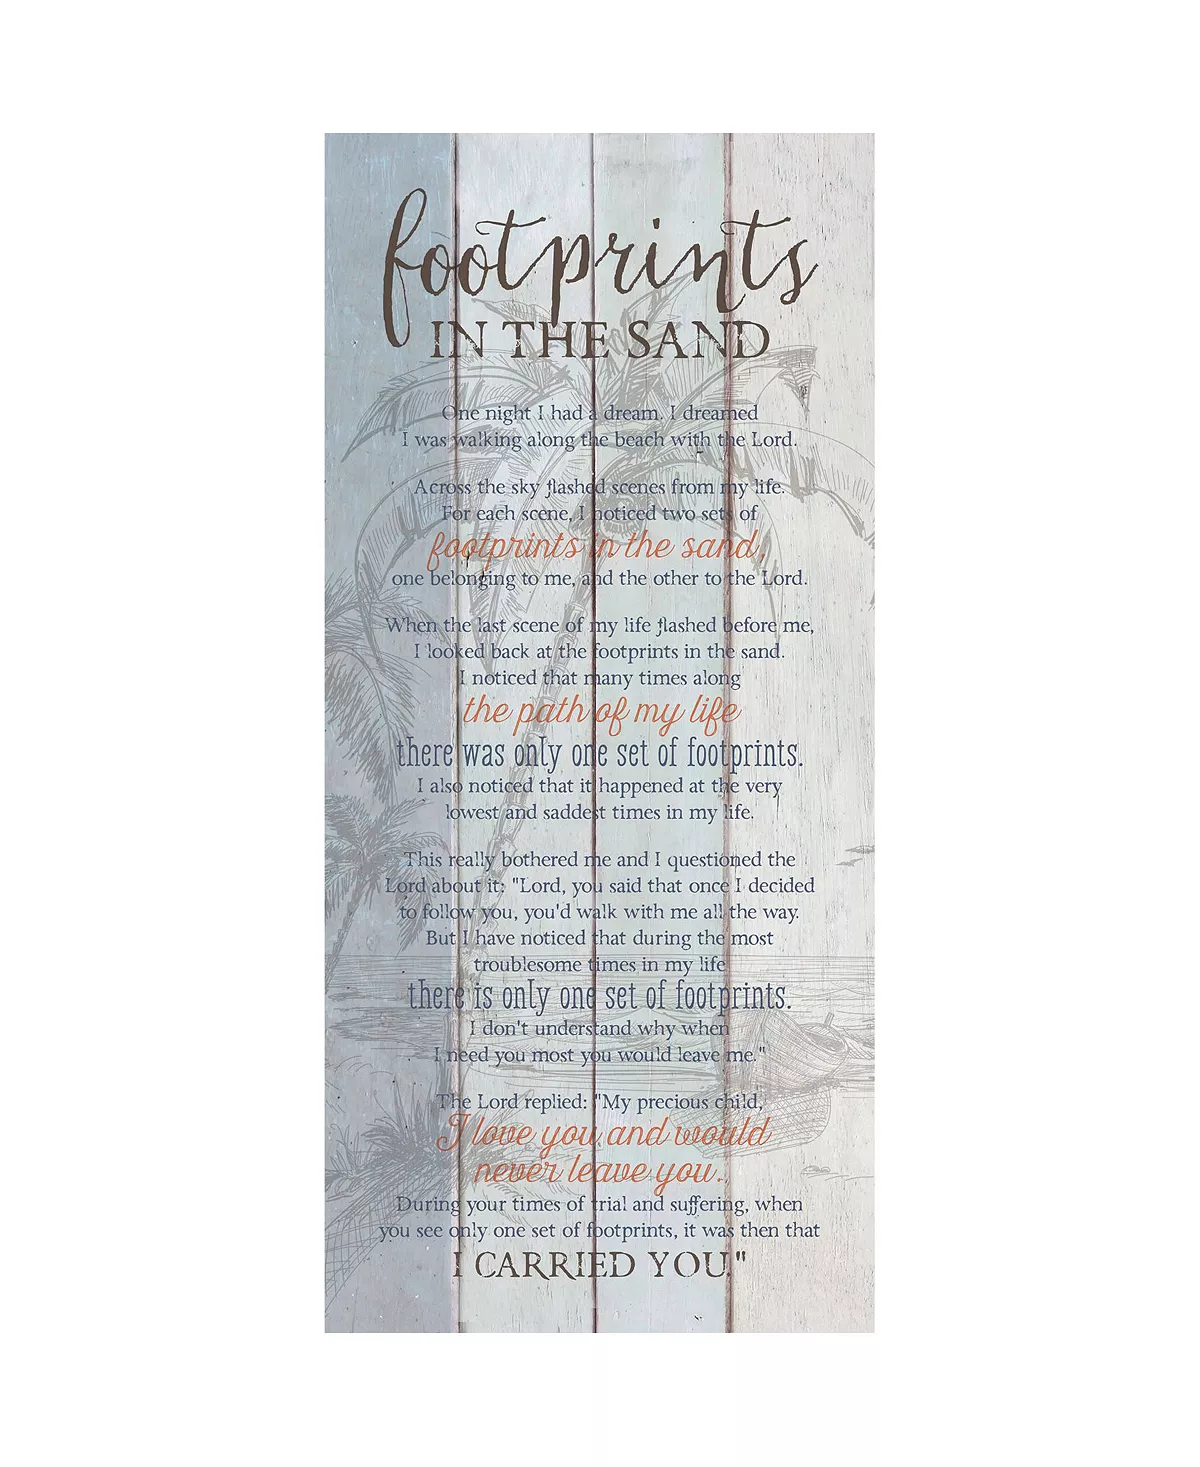 footprints
IN THE SAND
One night I had a dream. I dreamed
I was walking along the beach with the Lord.
Across the sky flashed scenes from my life.
For each scene, I noticed two sets of
footprints in the sand,
one belonging to me, and the other to the Lord.
When the last scene of my life flashed before me,
I looked back at the footprints in the sand.
I noticed that many times along
the path of my life
there was only one set of footprints.
I also noticed that it happened at the very
lowest and saddest times in my life.
This really bothered me and I questioned the
Lord about it: "Lord, you said that once I decided
to follow you, you'd walk with me all the way.
But I have noticed that during the most
troublesome times in my life
there is only one set of footprints.
I don't understand why when
I need you most you would leave me."
The Lord replied: "My precious child,
I love you and would
never leave you.
During your times of trial and suffering, when
you see only one set of footprints, it was then that
I CARRIED YOU."